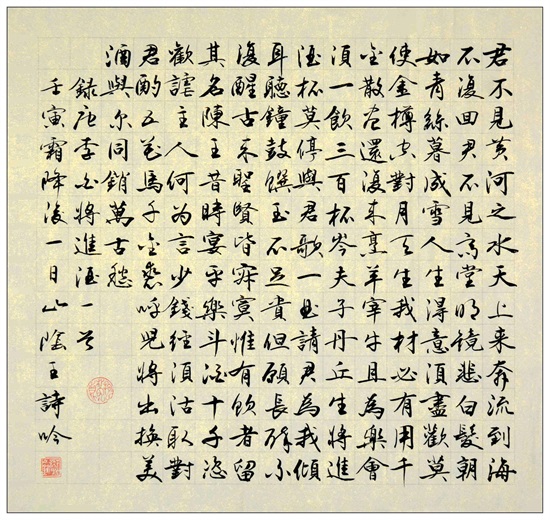 君不見黃河之水天上来奔流到海
不復回君不見高堂明鏡悲白髮朝
如青絲暮成雪人生得意須盡歡莫
使金樽空對月天生我材必有用千
金散盡還復来烹羊宰牛且為樂會
須一飲三百杯岑夫子丹丘生將進
酒杯莫停與君歌一曲請君為我傾
耳聽鐘鼓饌玉不足貴但願長醉不
復醒古来聖賢皆寂寞惟有飲者留
其名陳王昔時宴平樂斗酒十千恣
歡謔主人何為言少錢徑須沽取對
君酌五花馬千金裘呼兒將出換美
酒與尔同銷萬古愁
錄唐李白將進酒一首
壬寅霜降後一日山陰王詩吟